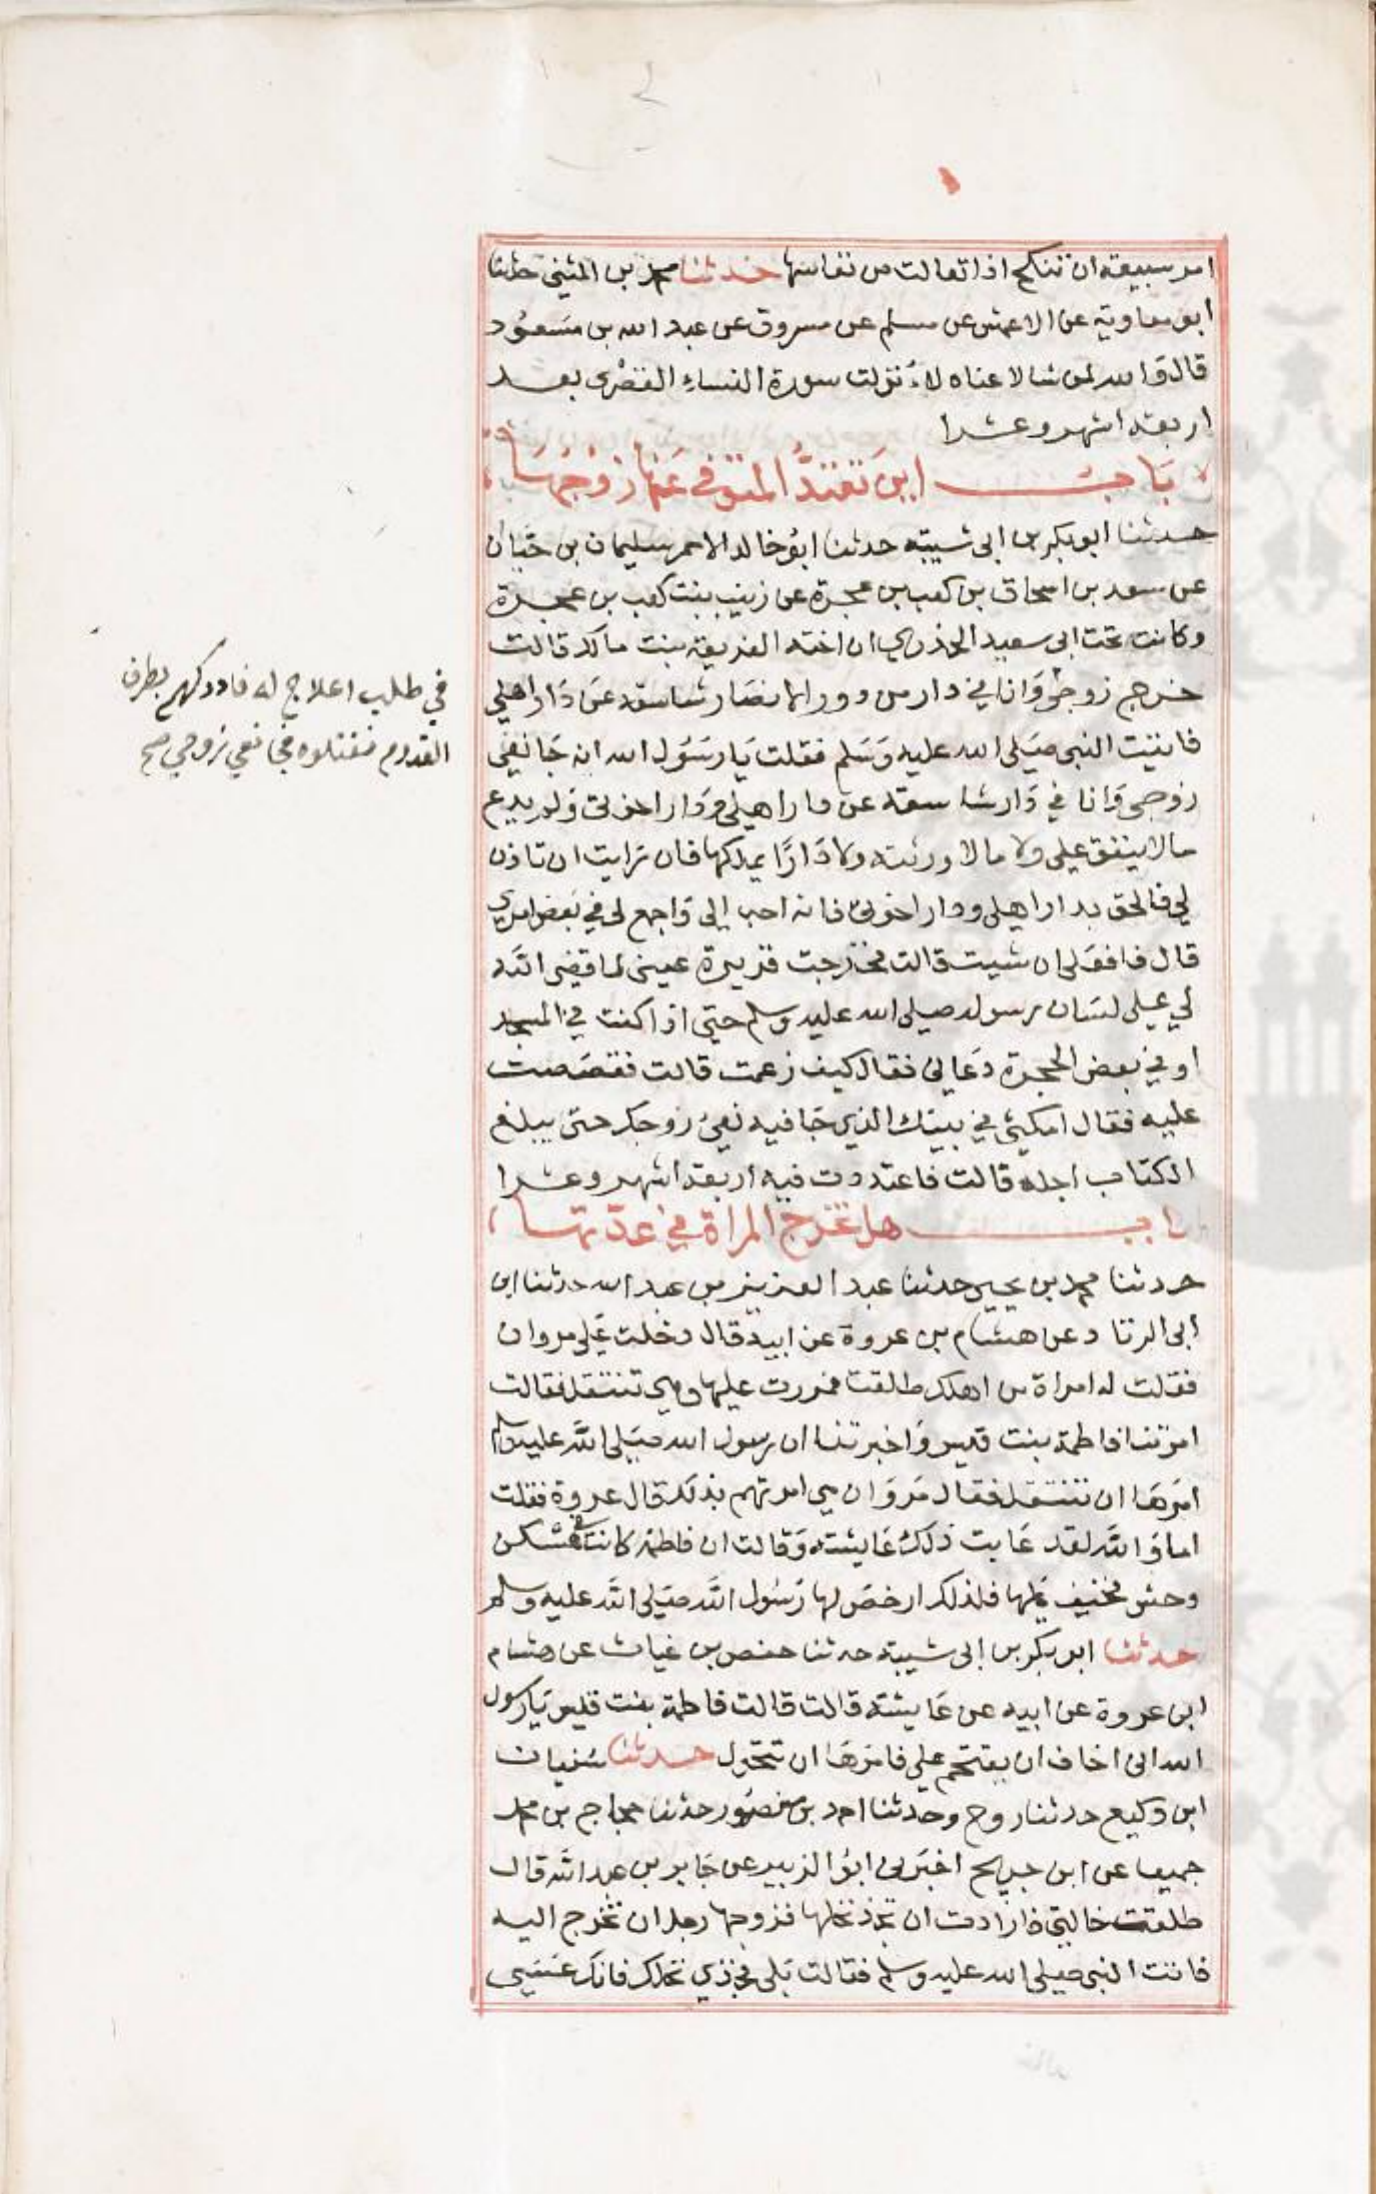 امر سبيعة ان تنكح اذا تعالت من نفاسها حدثنا محمد بن المثنى حدثنا
ابو معاوية عن الاعمش عن مسلم عن مسروق عن عبد الله بن مسعود
قال والله لمن شا لاعناه لاءنزلت سورة النساء القصرى بعد
اربعة اشهر وعشرا
باب اين تعتد المتوفى عنها زوجها
حدثنا ابو بكر بن ابى شيبة حدثنا ابو خالد الاحمر سليمان بن حبان
عن سعد بن اسحاق بن كعب بن عجرة عن زينب بنت كعب بن عجرة
وكانت تحت ابى سعيد الخذري ان اخته الفريعة بنت مالك قالت
خرج زوجى وانا في دار من دور الانصار شاسعة عن دار اهلي
في طلب اعلاج له فادركهم بطرف
القدوم فقتلوه فجا نعي زوجي صح
فاتيت النبى صلى الله عليه وسلم فقلت يا رسول الله انه جا نعى
زوجى وانا في دار شاسعة عن دار اهلي ودار اخوتى ولم يدع
مالا ينفق علي ولا مالا ورثته ولا دارا يملكها فان رايت ان تاذن
لي فالحق بدار اهلي ودار اخوتى فانه احب الي واجمع لى في بعض امري
قال فافعلى ان شيت قالت فخرجت قريرة عينى لما قضى الله
لي على لسان رسوله صلى الله عليه وسلم حتى اذا كنت في المسجد
او في بعض الحجرة دعانى فقال كيف زعمت قالت فقصصت
عليه فقال امكثي في بيتك الذي جا فيه نعي زوجك حتى يبلغ
الكتاب اجله قالت فاعتددت فيه اربعة اشهر وعشرا
باب هل تخرج المراة في عدتها
حدثنا محمد بن يحيى حدثنا عبد العزيز بن عبد الله حدثنا ابن
ابى الزناد عن هشام بن عروة عن ابيه قال دخلت على مروان
فقلت له امراة من اهلك طلقت فمررت عليها وهي تنتقل فقالت
امرتنا فاطمة بنت قيس واخبرتنا ان رسول الله صلى الله عليه وسلم
امرها ان تنتقل فقال مروان هي امرتهم بذلك قال عروة فقلت
اما والله لقد عابت ذلك عايشة وقالت ان فاطمة كانت في مسكن
وحش فخيف عليها فلذلك ارخص لها رسول الله صلى الله عليه وسلم
حدثنا ابو بكر بن ابى شيبة حدثنا حفص بن غياث عن هشام
ابن عروة عن ابيه عن عايشة قالت قالت فاطمة بنت قيس يا رسول
الله انى اخاف ان يقتحم علي فامرها ان تتحول حدثنا سفيان
ابن وكيع حدثنا روح وحدثنا احمد بن منصور حدثنا حجاج بن محمد
جميعا عن ابن جريج اخبرنى ابو الزبير عن جابر بن عبد الله قال
طلقت خالتي فارادت ان تجذ نخلها فزوجها رجل ان تخرج اليه
فاتت النبى صلى الله عليه وسلم فقالت بلى فجذي نخلك فانك عسى